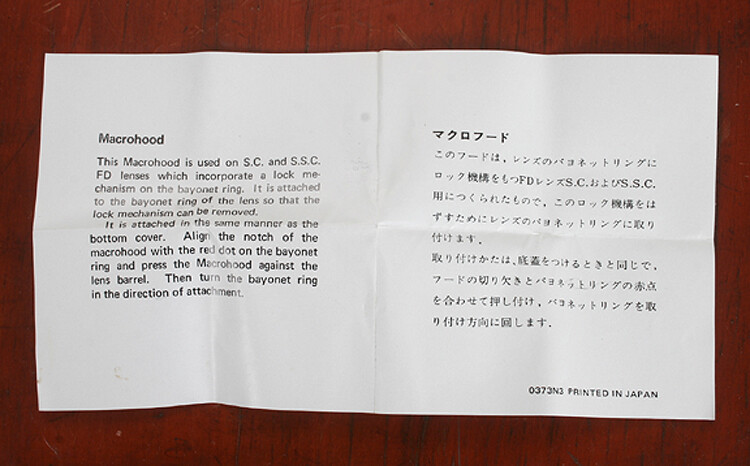 Macrohood
This Macrohood is used on S.C. and S.S.C.
FD lenses which incorporate a lock me-
chanism on the bayonet ring. It is attached
to the bayonet ring of the lens so that the
lock mechanism can be removed.
It is attached in the same manner as the
bottom cover. Align the notch of the
macrohood with the red dot on the bayonet
ring and press the Macrohood against the
lens barrel. Then turn the bayonet ring
in the direction of attachment.
マクロフード
このフードは，レンズのバヨネットリングに
ロック機構をもつFDレンズS.C.およびS.S.C.
用につくられたもので，このロック機構をは
ずすためにレンズのバヨネットリングに取り
付けます．
取り付けかたは，底蓋をつけるときと同じで，
フードの切り欠きとバヨネットリングの赤点
を合わせて押し付け，バヨネットリングを取
り付け方向に回します．
0373N3 PRINTED IN JAPAN